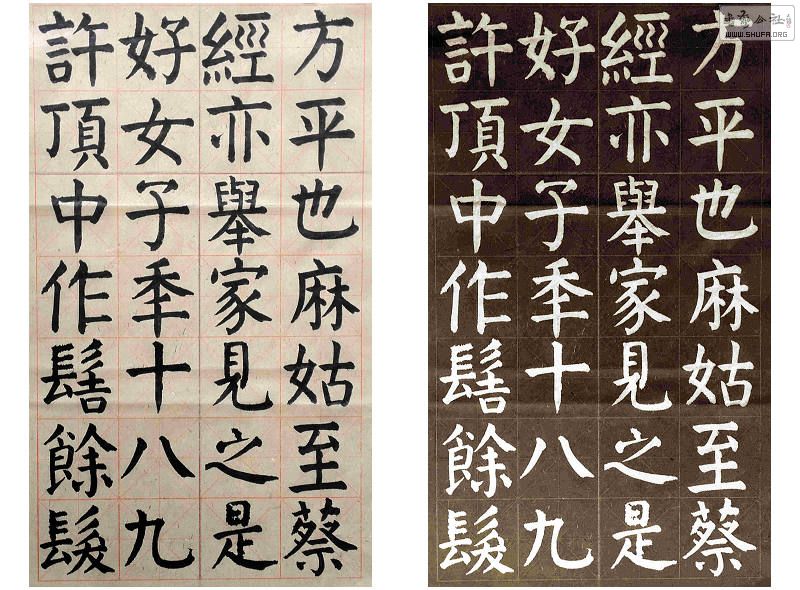 方平也麻姑至蔡
經亦舉家見之是
好女子秊十八九
許頂中作髻餘髮
方平也麻姑至蔡
經亦舉家見之是
好女子秊十八九
許頂中作髻餘髮
WWW.SHUFA.ORG